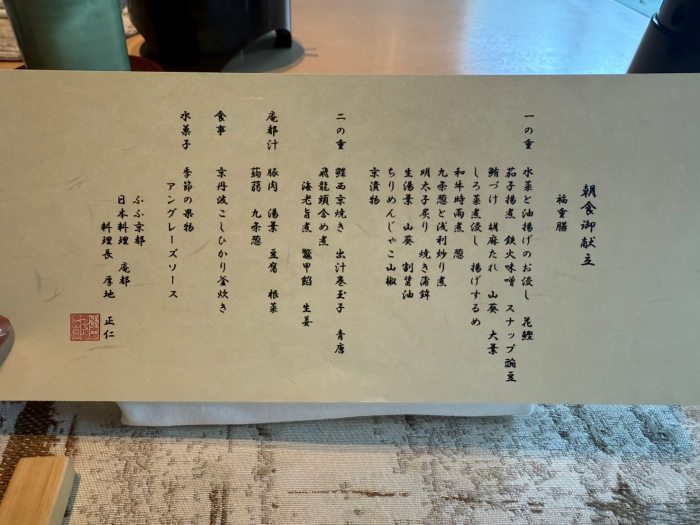 朝食御献立
福重膳
一の重 水菜と油揚げのお浸し 花鰹
茄子揚煮 鉄火味噌 スナップ豌豆
鮪づけ 胡麻たれ 山葵 大葉
しろ菜煮浸し 揚げするめ
和牛時雨煮 葱
九条葱と浅利炒り煮
明太子炙り 焼き蒲鉾
生湯葉 山葵 割醤油
ちりめんじゃこ山椒
京漬物
二の重 鰈西京焼き 出汁巻玉子 青唐
飛龍頭含め煮
海老旨煮 鼈甲餡 生姜
庵都汁 豚肉 湯葉 豆腐 根菜
蒟蒻 九条葱
食事 京丹波こしひかり釜炊き
水菓子 季節の果物
アングレーズソース
ふふ京都
日本料理 庵都
料理長 厚地 正仁